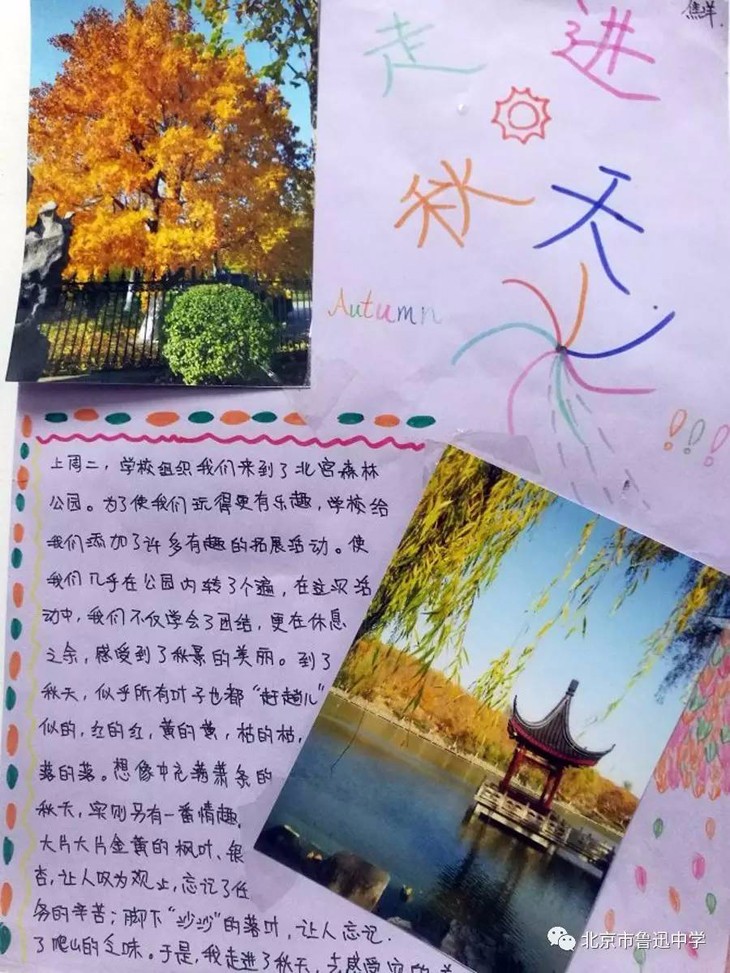 走进
秋天
Autumn
!!!
上周二，学校组织我们来到了北宫森林
公园。为了使我们玩得更有乐趣，学校给
我们添加了许多有趣的拓展活动。使
我们几乎在公园内转了个遍，在这次活
动中，我们不仅学会了团结，更在休息
之余，感受到了秋景的美丽。到了
秋天，似乎所有叶子也都“赶趟儿”
似的，红的红，黄的黄，枯的枯，
落的落。想像中充满萧条的
秋天，实则另有一番情趣，
大片大片金黄的枫叶、银
杏，让人叹为观止，忘记了任
务的辛苦；脚下“沙沙”的落叶，让人忘记
了爬山的乏味。于是，我走进了秋天，去感受它的美
北京市鲁迅中学